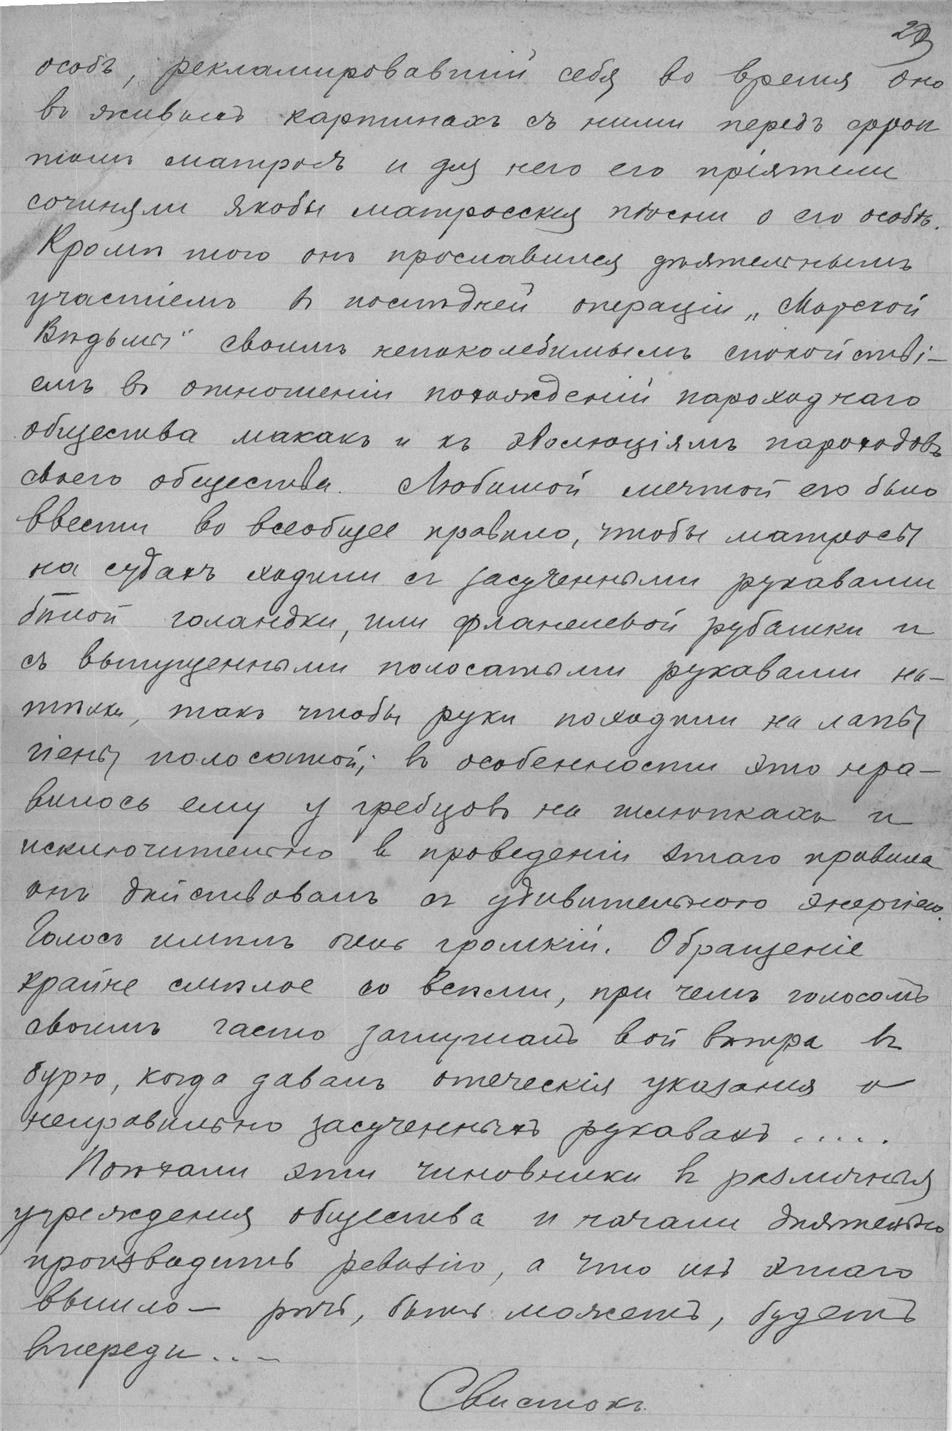 29
особъ, рекламировавшій себя во время оно
въ живыхъ картинахъ съ ними передъ фрон
томъ матросъ и для него его пріятели
сочиняли якобы матросскія пѣсни о его особѣ.
Кромѣ того онъ прославился дѣятельнымъ
участіемъ въ послѣдней операціи „Морской
Вѣдьмы" своимъ непоколебимымъ спокойстві-
емъ въ отношеніи похожденій пароходнаго
общества макакъ и къ эволюціямъ пароходовъ
своего общества. Любимой мечтой его было
ввести во всеобщее правило, чтобы матросы
на судахъ ходили съ засученными рукавами
бѣлой голандки, или фланелевой рубашки и
съ выпущенными полосатыми рукавами на-
тѣльни, такъ чтобы руки походили на лапы
гіены полосатой; въ особенности это нра-
вилось ему у гребцовъ на шлюпкахъ и
исключительно въ проведеніи этаго правила
онъ дѣйствовалъ съ удивительною энергіею.
Голосъ имѣлъ очень громкій. Обращеніе
крайне смѣлое со всѣми, при чемъ голосомъ
своимъ часто заглушалъ вой вѣтра въ
бурю, когда давалъ отеческія указания о
неправильно засученныхъ рукавахъ .....
Поѣхали эти чиновники въ различныя
учреждения общества и начали дѣятельно
производить ревизію, а что изъ этаго
вышло — рѣчь, быть можетъ, будетъ
впереди...
Свистокъ.